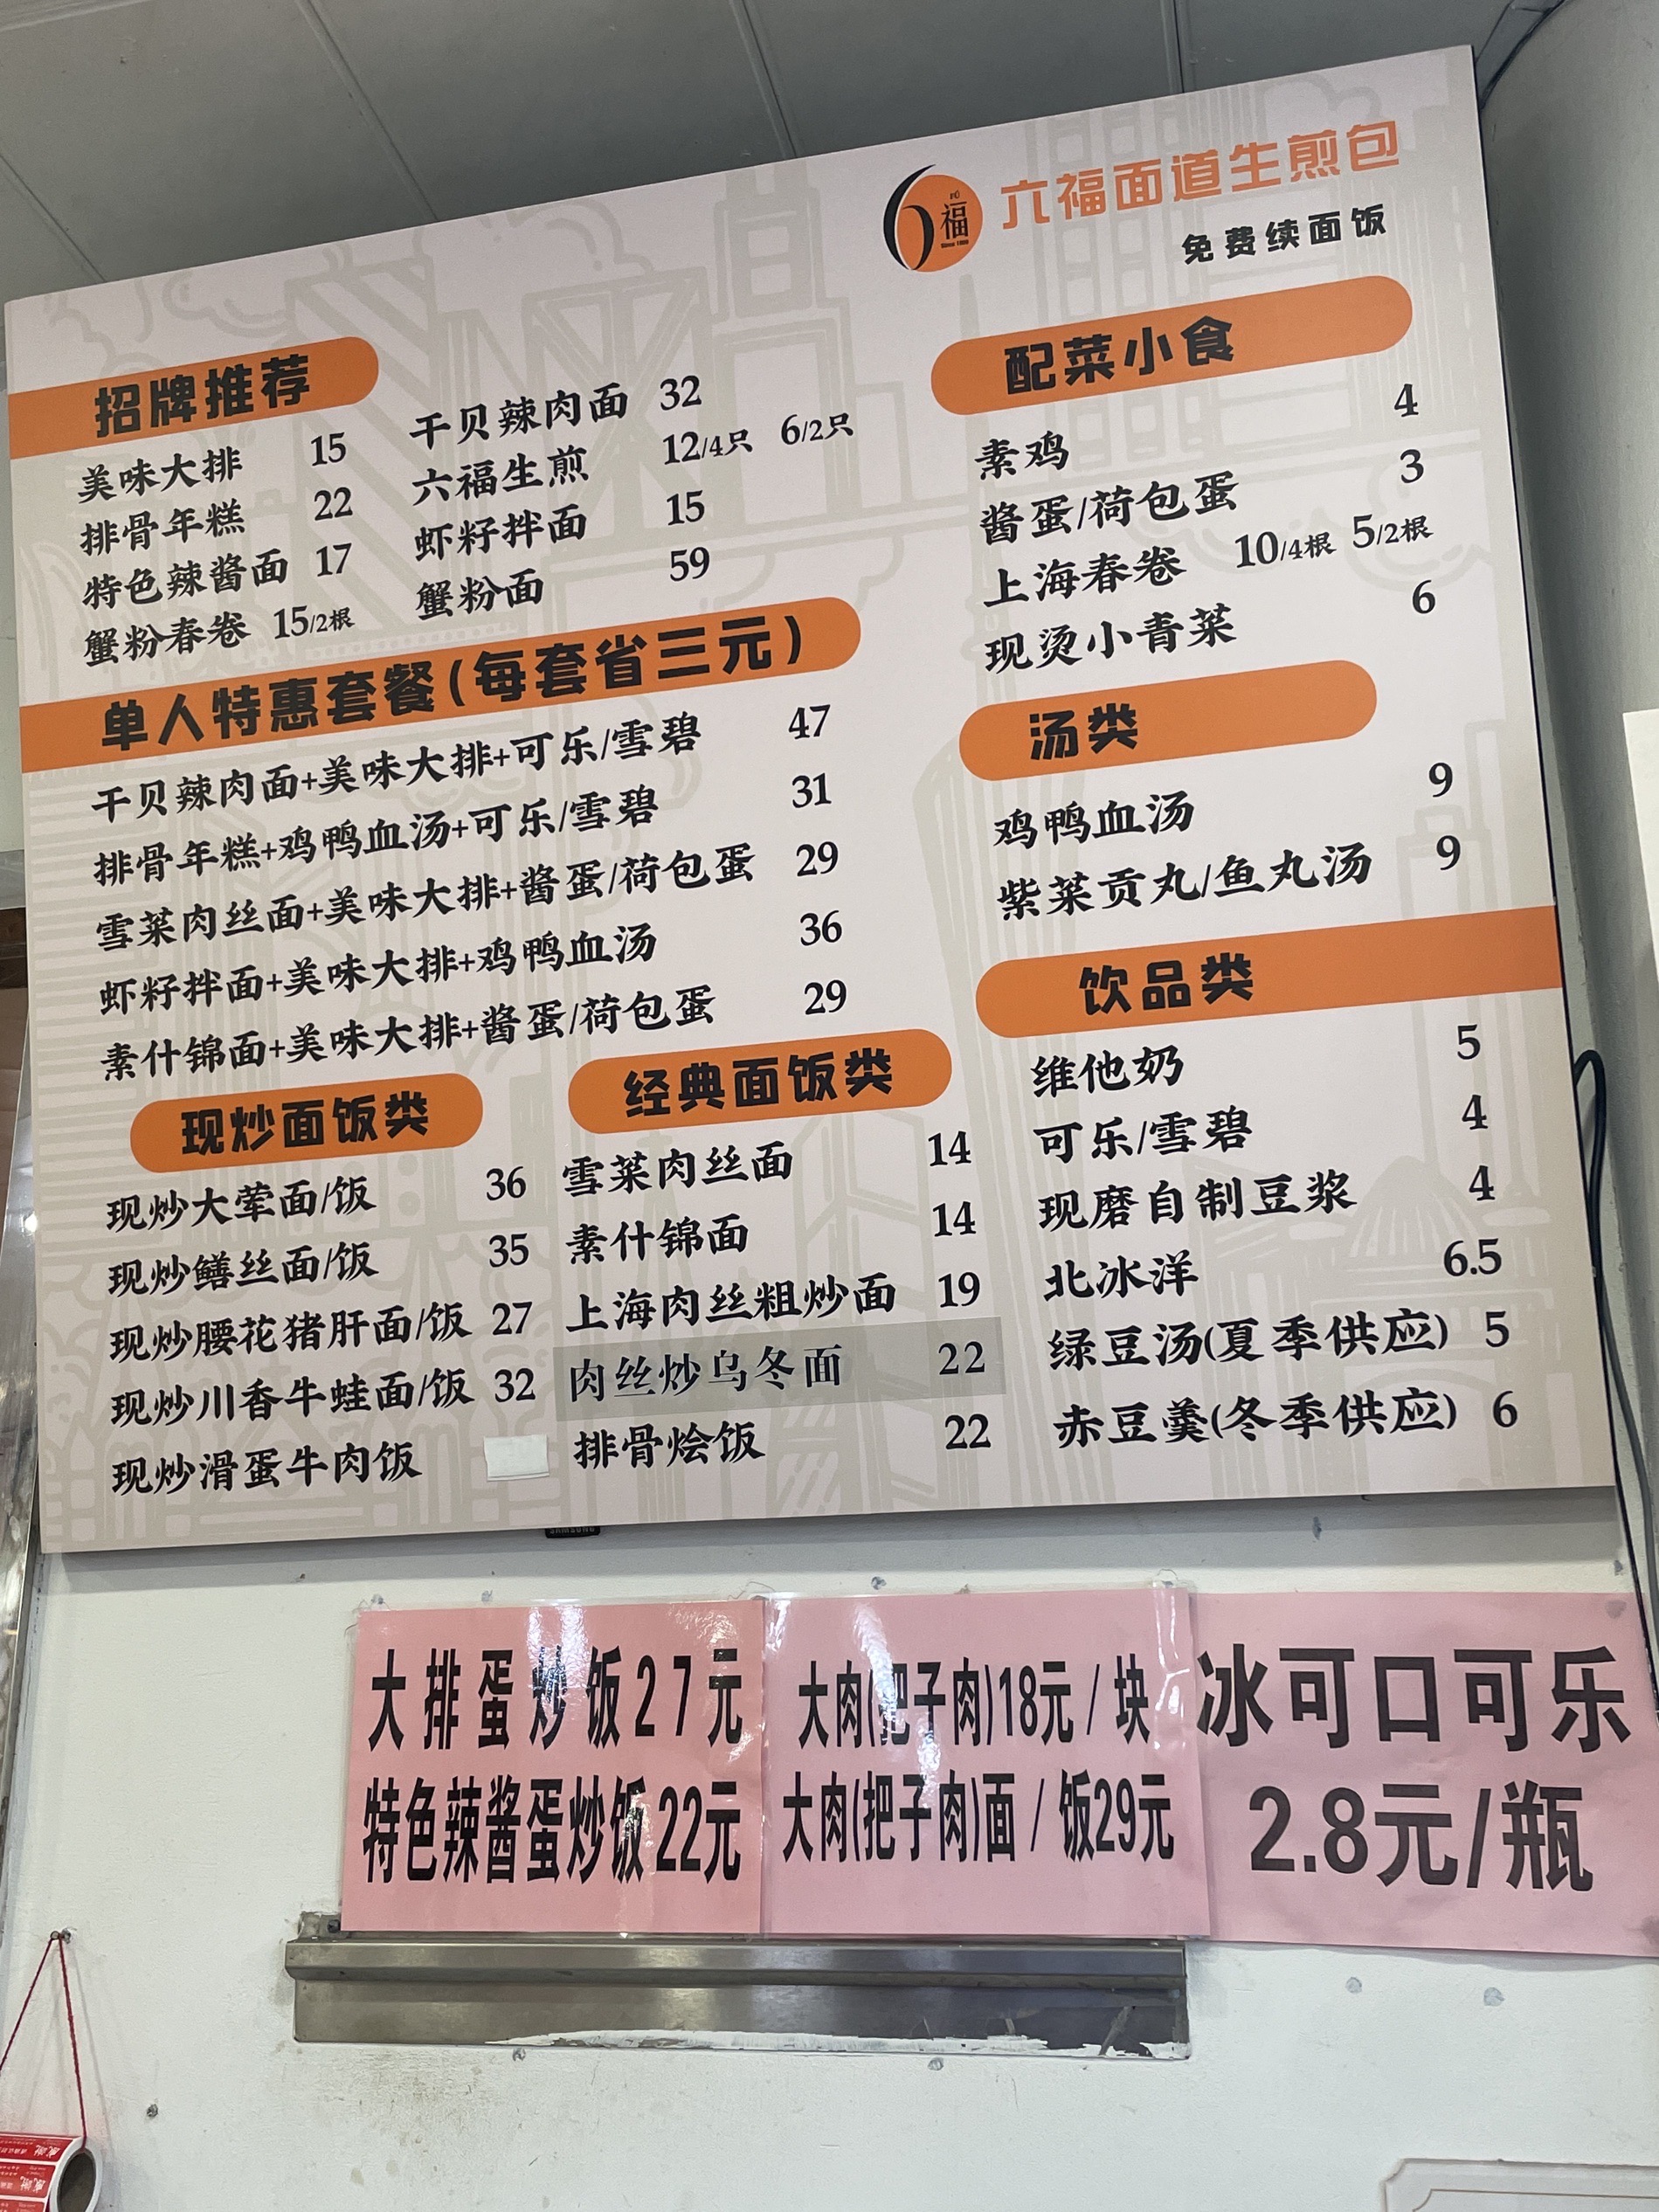 福
六福面道生煎包
免费续面饭
招牌推荐
美味大排 15
排骨年糕 22
特色辣酱面 17
蟹粉春卷 15/2根
干贝辣肉面 32
六福生煎 12/4只 6/2只
虾籽拌面 15
蟹粉面 59
单人特惠套餐(每套省三元)
干贝辣肉面+美味大排+可乐/雪碧 47
排骨年糕+鸡鸭血汤+可乐/雪碧 31
雪菜肉丝面+美味大排+酱蛋/荷包蛋 29
虾籽拌面+美味大排+鸡鸭血汤 36
素什锦面+美味大排+酱蛋/荷包蛋 29
现炒面饭类
现炒大荤面/饭 36
现炒鳝丝面/饭 35
现炒腰花猪肝面/饭 27
现炒川香牛蛙面/饭 32
现炒滑蛋牛肉饭
经典面饭类
雪菜肉丝面 14
素什锦面 14
上海肉丝粗炒面 19
肉丝炒乌冬面 22
排骨烩饭 22
配菜小食
素鸡 4
酱蛋/荷包蛋 3
上海春卷 10/4根 5/2根
现烫小青菜 6
汤类
鸡鸭血汤 9
紫菜贡丸/鱼丸汤 9
饮品类
维他奶 5
可乐/雪碧 4
现磨自制豆浆 4
北冰洋 6.5
绿豆汤(夏季供应) 5
赤豆羹(冬季供应) 6
SAMSUNG
大排蛋炒饭27元
特色辣酱蛋炒饭22元
大肉(把子肉)18元/块
大肉(把子肉)面/饭29元
冰可口可乐
2.8元/瓶